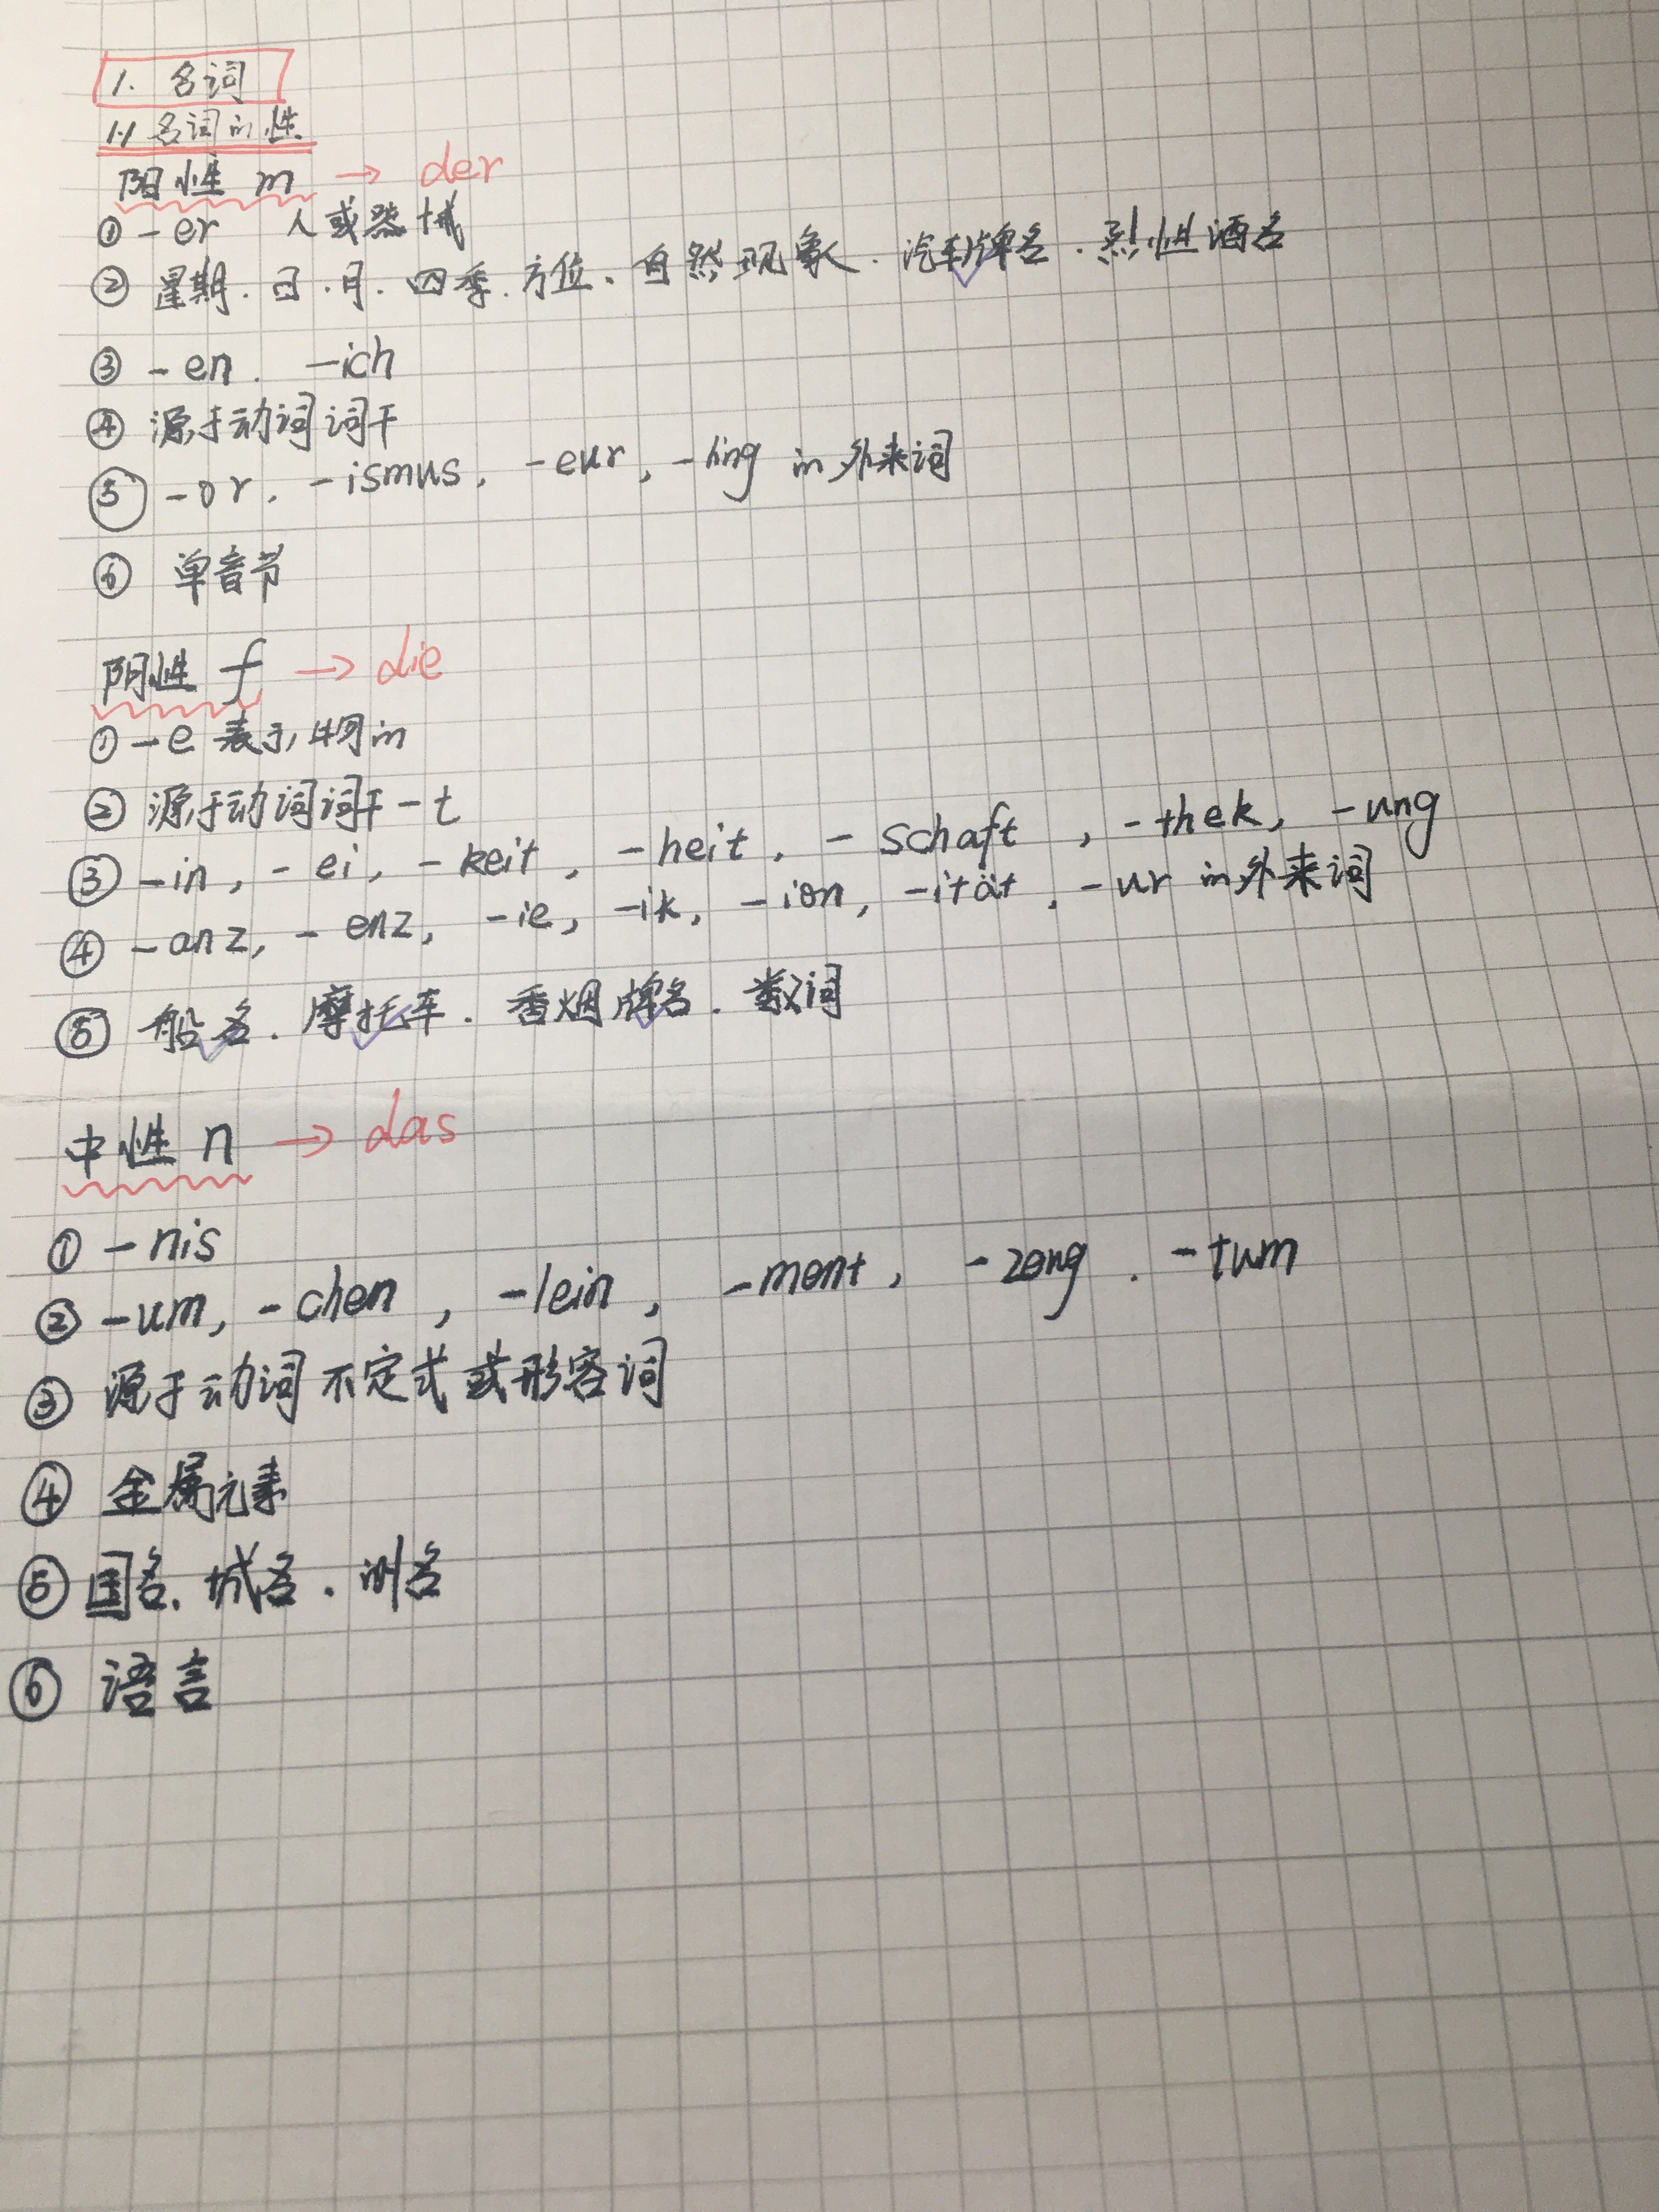 1. 名词
1.1 名词的性
阳性 m → der
① -er 人或器械
② 星期.日.月.四季.方位、自然现象.汽车牌名.烈性酒名
③ -en. -ich
④ 源于动词词干
⑤ -or. -ismus. -eur, -ling 的外来词
⑥ 单音节
阴性 f → die
① -e 表示物的
② 源于动词词干-t
③ -in, -ei, -keit, -heit, -schaft, -thek, -ung
④ -anz, -enz, -ie, -ik, -ion, -ität, -ur 的外来词
⑤ 船名.摩托车.香烟牌名.数词
中性 n → das
① -nis
② -um, -chen, -lein, -ment, -zeng. -tum
③ 源于动词不定式或形容词
④ 金属元素
⑤ 国名.城名.洲名
⑥ 语言